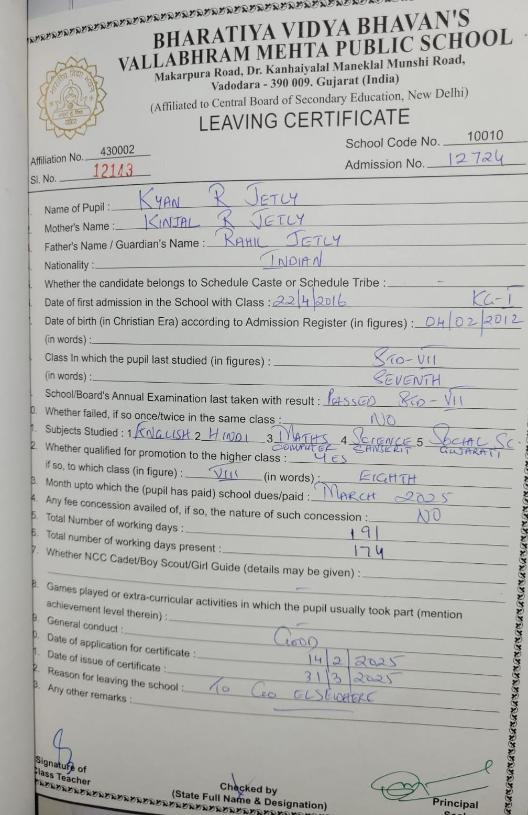 BHARATIYA VIDYA BHAVAN'S
VALLABHRAM MEHTA PUBLIC SCHOOL
Makarpura Road, Dr. Kanhaiyalal Maneklal Munshi Road,
Vadodara - 390 009. Gujarat (India)
(Affiliated to Central Board of Secondary Education, New Delhi)
LEAVING CERTIFICATE
Affiliation No. 430002 School Code No. 10010
Sl. No. 12143 Admission No. 12724
Name of Pupil : KYAN R JETLY
Mother's Name : KINJAL R JETLY
Father's Name / Guardian's Name : RAHIL JETLY
Nationality : INDIAN
Whether the candidate belongs to Schedule Caste or Schedule Tribe : -
Date of first admission in the School with Class : 22/4/2016 KG-I
Date of birth (in Christian Era) according to Admission Register (in figures) : 04/02/2012
(in words) :
Class In which the pupil last studied (in figures) : STD-VII
(in words) : SEVENTH
School/Board's Annual Examination last taken with result : PASSED STD-VII
0. Whether failed, if so once/twice in the same class : NO
1. Subjects Studied : 1 ENGLISH 2 HINDI 3 MATHS 4 SCIENCE 5 SOCIAL SC.
COMPUTER SANSKRIT GUJARATI
2. Whether qualified for promotion to the higher class : YES
if so, to which class (in figure) : VIII (in words) : EIGHTH
3. Month upto which the (pupil has paid) school dues/paid : MARCH 2025
4. Any fee concession availed of, if so, the nature of such concession : NO
5. Total Number of working days : 191
6. Total number of working days present : 174
7. Whether NCC Cadet/Boy Scout/Girl Guide (details may be given) :
-
8. Games played or extra-curricular activities in which the pupil usually took part (mention
achievement level therein) : -
9. General conduct : GOOD
0. Date of application for certificate : 14/2/2025
1. Date of issue of certificate : 31/3/2025
2. Reason for leaving the school : TO GO ELSEWHERE
3. Any other remarks :
Signature of
Class Teacher
Checked by
(State Full Name & Designation)
Principal